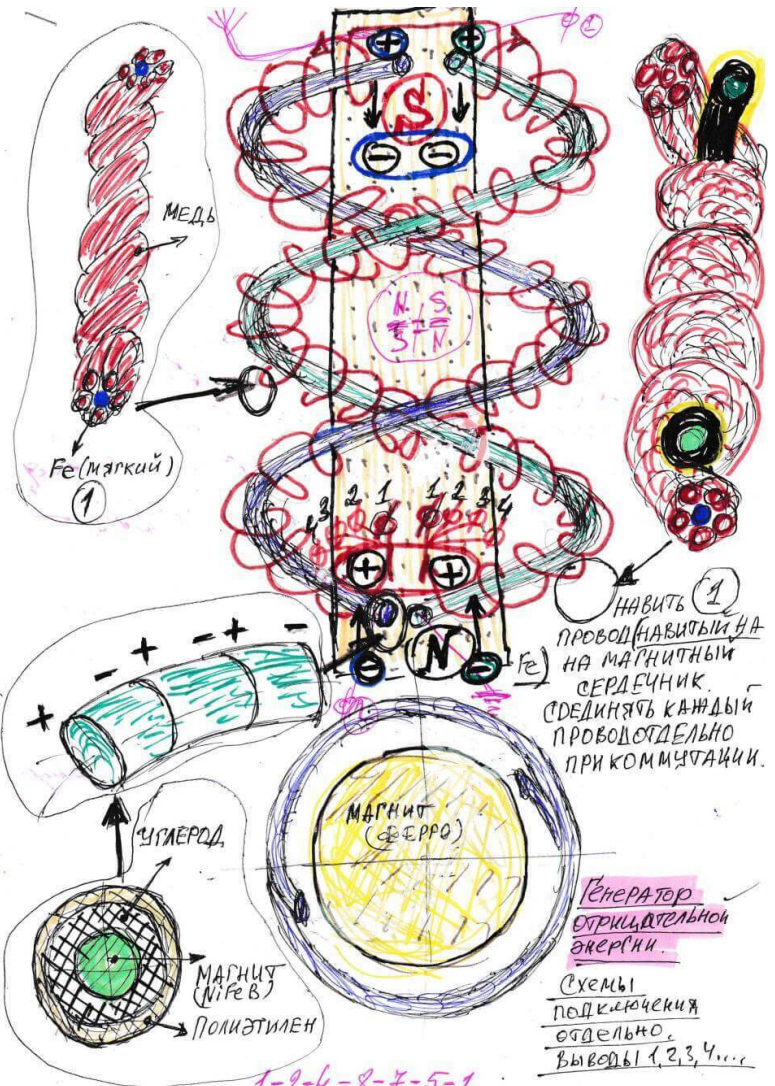 1
+ +
S
- -
МЕДЬ
Fe (мягкий)
1
N S
S N
4 3 2 1 1 2 3 4
+ +
- N - Fe)
НАВИТЬ 1
ПРОВОД (НАВИТЫЙ НА
НА МАГНИТНЫЙ
СЕРДЕЧНИК.
СОЕДИНЯТЬ КАЖДЫЙ
ПРОВОД ОТДЕЛЬНО
ПРИ КОММУТАЦИИ.
+ - + - + -
МАГНИТ
(ФЕРРО)
УГЛЕРОД
МАГНИТ
(NiFeB)
ПОЛИЭТИЛЕН
Генератор
отрицательной
энергии.
Схемы
подключения
отдельно.
Выводы 1,2,3,4....
1-2-4-8-7-5-1